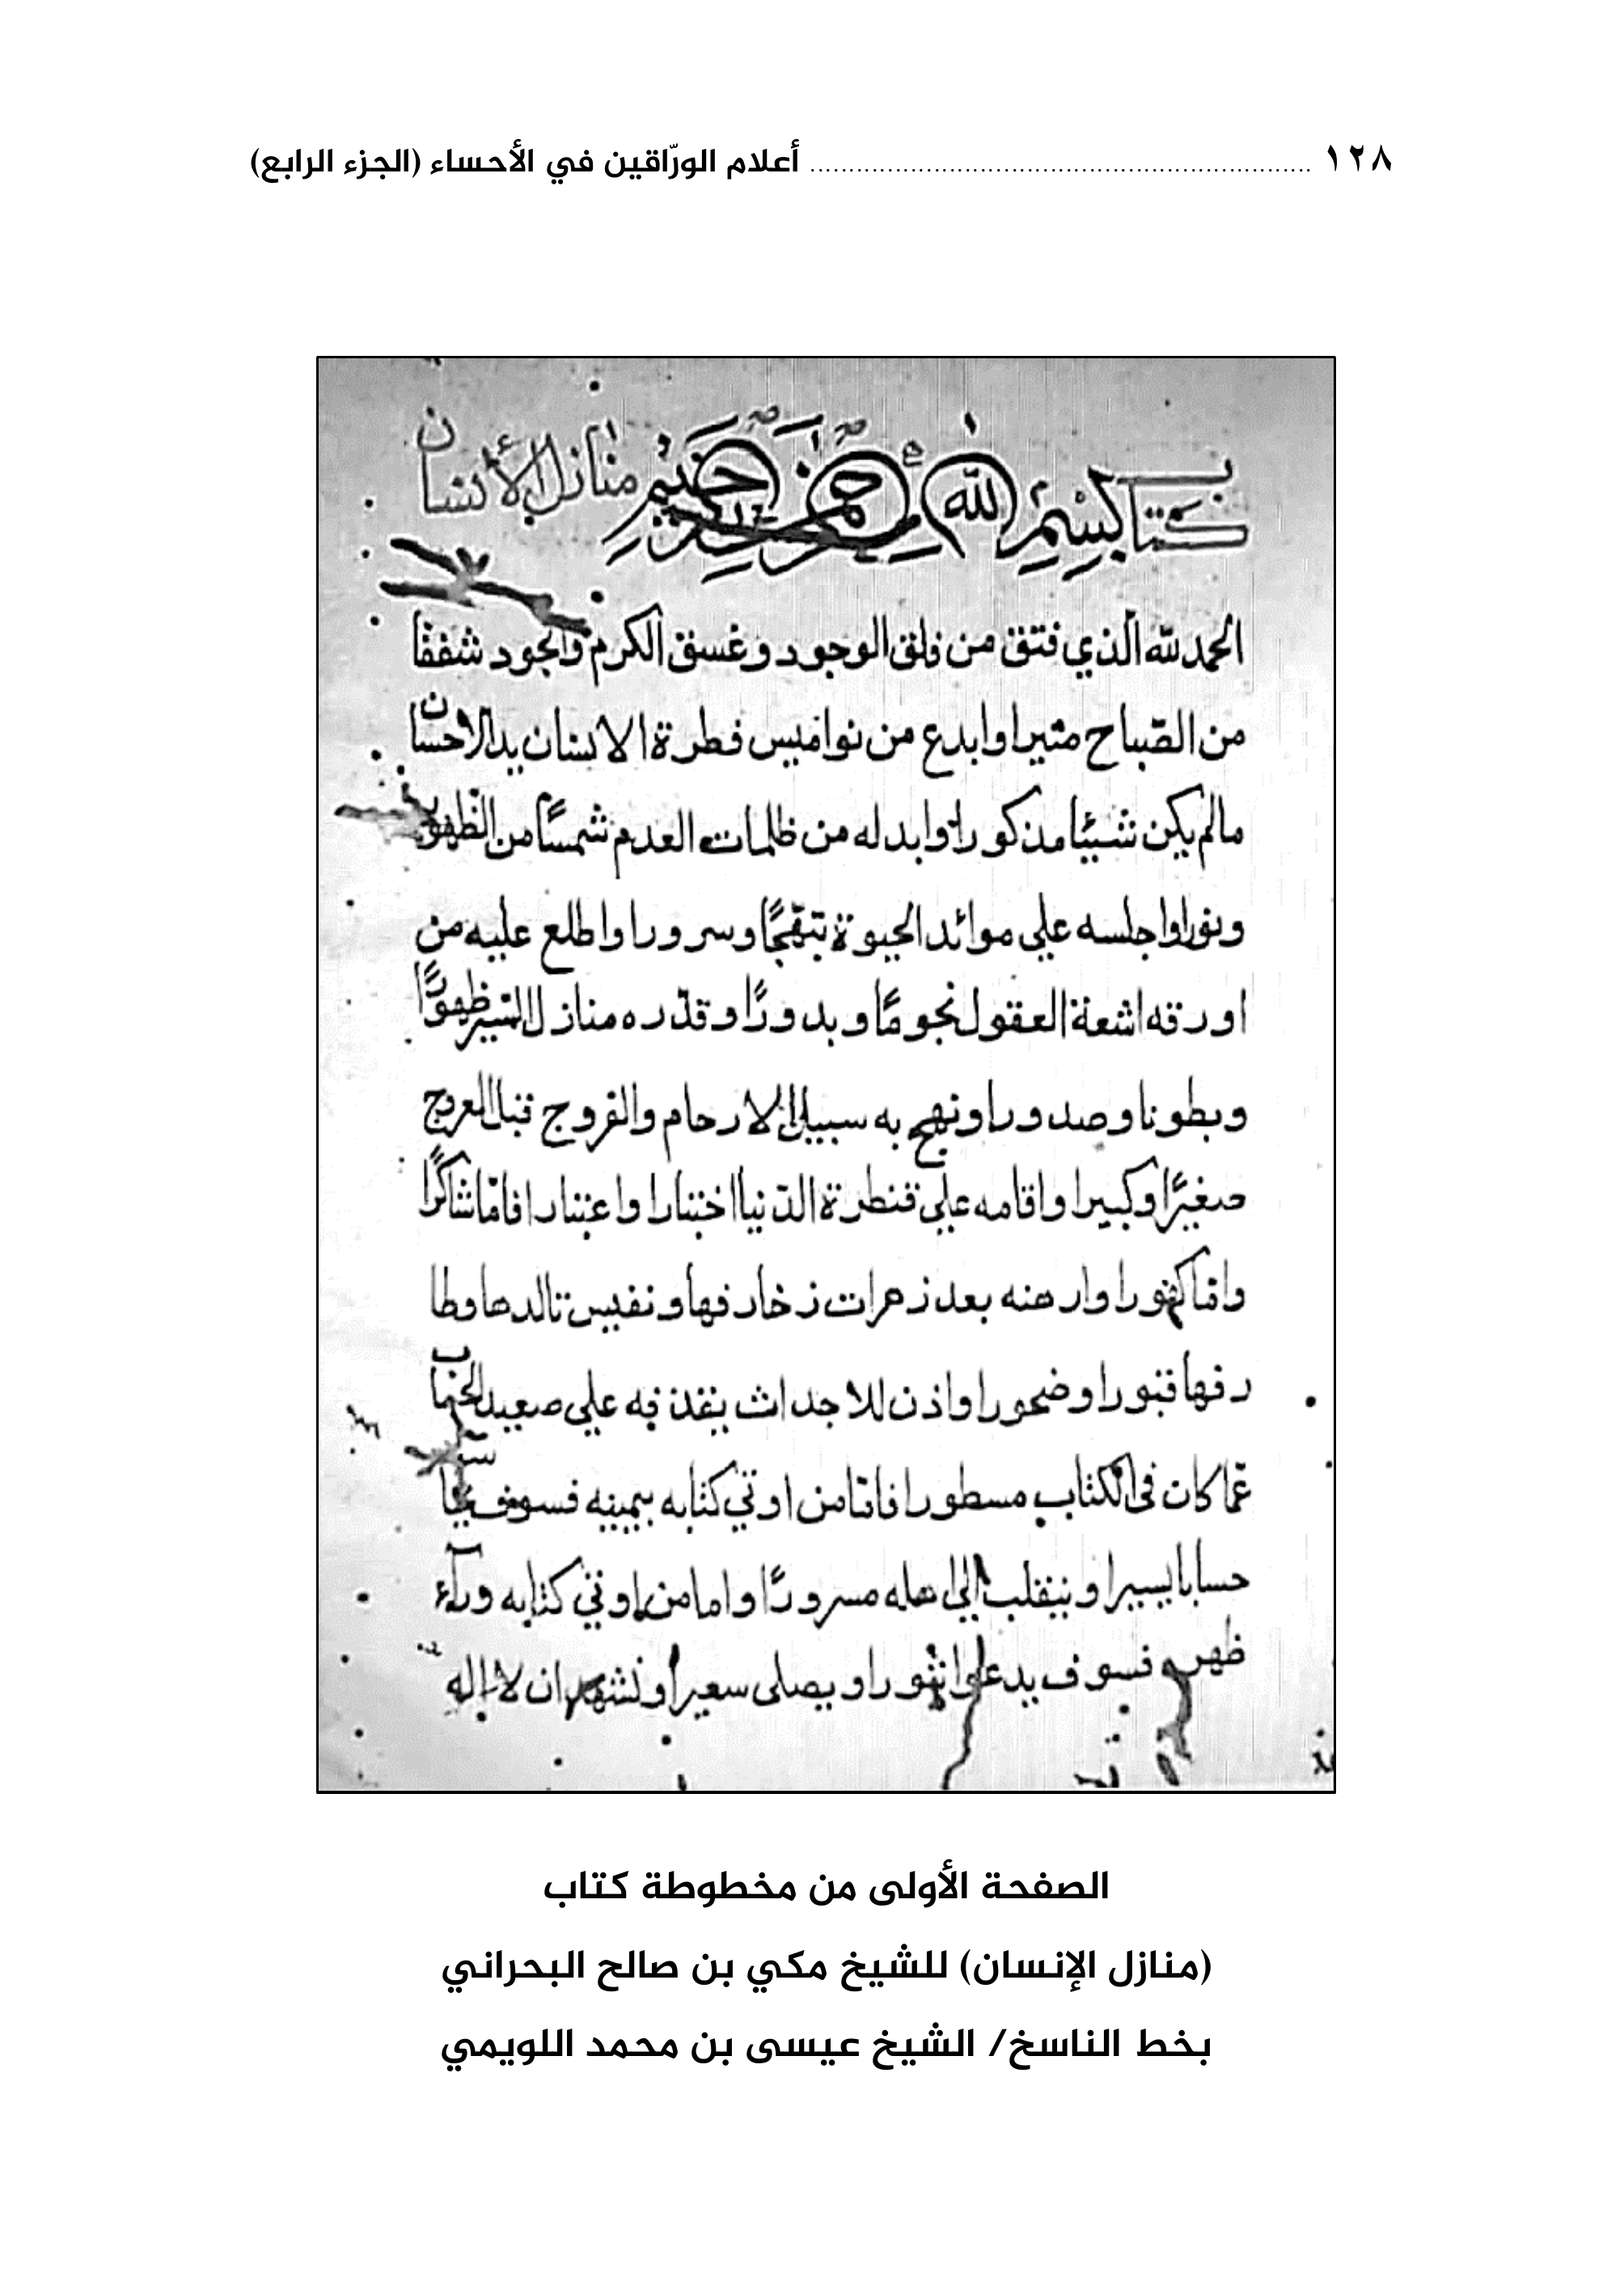 ١٢٨ ................................................................ أعلام الورّاقين في الأحساء (الجزء الرابع)
كتاب بسم الله الرحمن الرحيم منازل الأنسان
الحمد لله الذي فتق من فلق الوجود وغسق الكرم والجود شفقا
من الصّباح منيرا وابدع من نواميس فطرة الانسان يد الاحسان
مالم يكن شيئا مذكورا وابد له من ظلمات العدم شمسًا من الظهور
ونورا واجلسه علي موائد الحيوة وسرورا واطلع عليه من
اورقه اشعة العقول نجومًا وبدورًا وقدّره منازل السّير ظهورًا
وبطونا وصدورا ونهج به سبيل الى الارحام والفروج قبل العروج
صغيرًا وكبيرا واقامه علي قنطرة الدّنيا اختبارا واعتبارا فامّا شاكرًا
وامّا كفورا وارهنه بعد زهرات زخارفها ونفيس تالدها وطا
رفها قبورا واذن للاجداث علي صعيد الحساب
عمّا كان فى الكتاب مسطورا فامّا من اوتي كتابه بيمينه فسوف يحاسب
حسابا يسيرا وينقلب إلى اهله مسرورًا واما من اوتي كتابه ورآء
ظهره فسوف يدعوا ثبورا ويصلى سعيرا ونشهد ان لا إله
الصفحة الأولى من مخطوطة كتاب
(منازل الإنسان) للشيخ مكي بن صالح البحراني
بخط الناسخ/ الشيخ عيسى بن محمد اللويمي